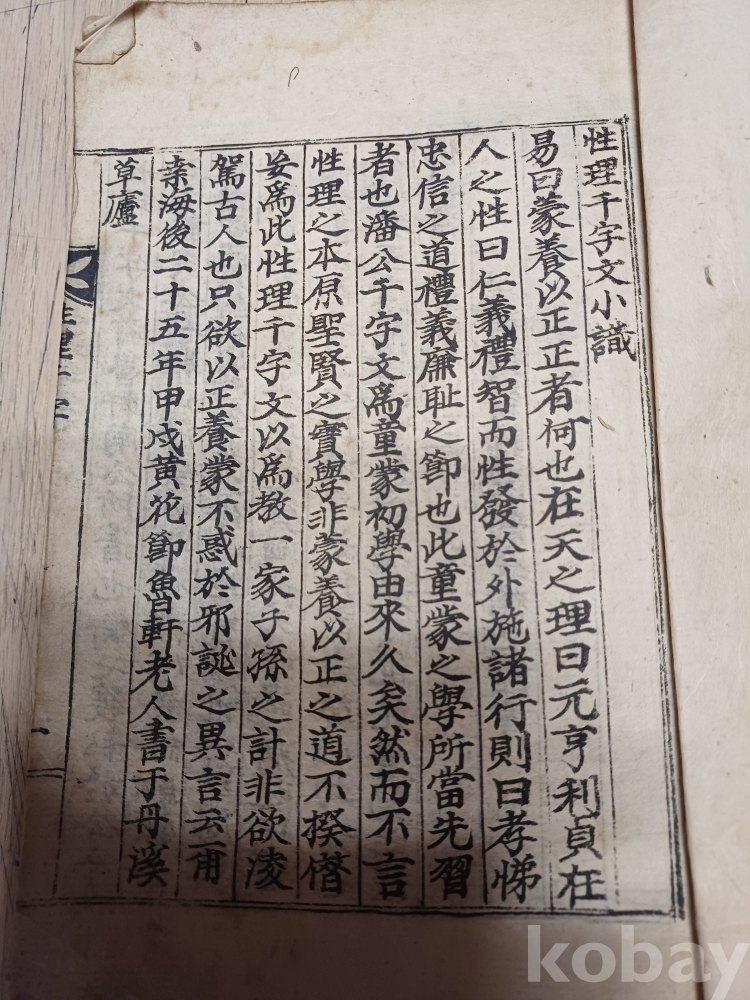 性理千字文小識
易曰蒙養以正正者何也在天之理曰元亨利貞在
人之性曰仁義禮智而性發於外施諸行則曰孝悌
忠信之道禮義廉耻之節也此童蒙之學所當先習
者也潘公千字文爲童蒙初學由來久矣然而不言
性理之本原聖賢之實學非蒙養以正之道不揆僭
妄爲此性理千字文以爲教一家子孫之計非欲凌
駕古人也只欲以正養蒙不惑於邪誕之異言云甭
桒海後二十五年甲戌黃花節魯軒老人書于丹溪
草廬
性理千字
一
kobay